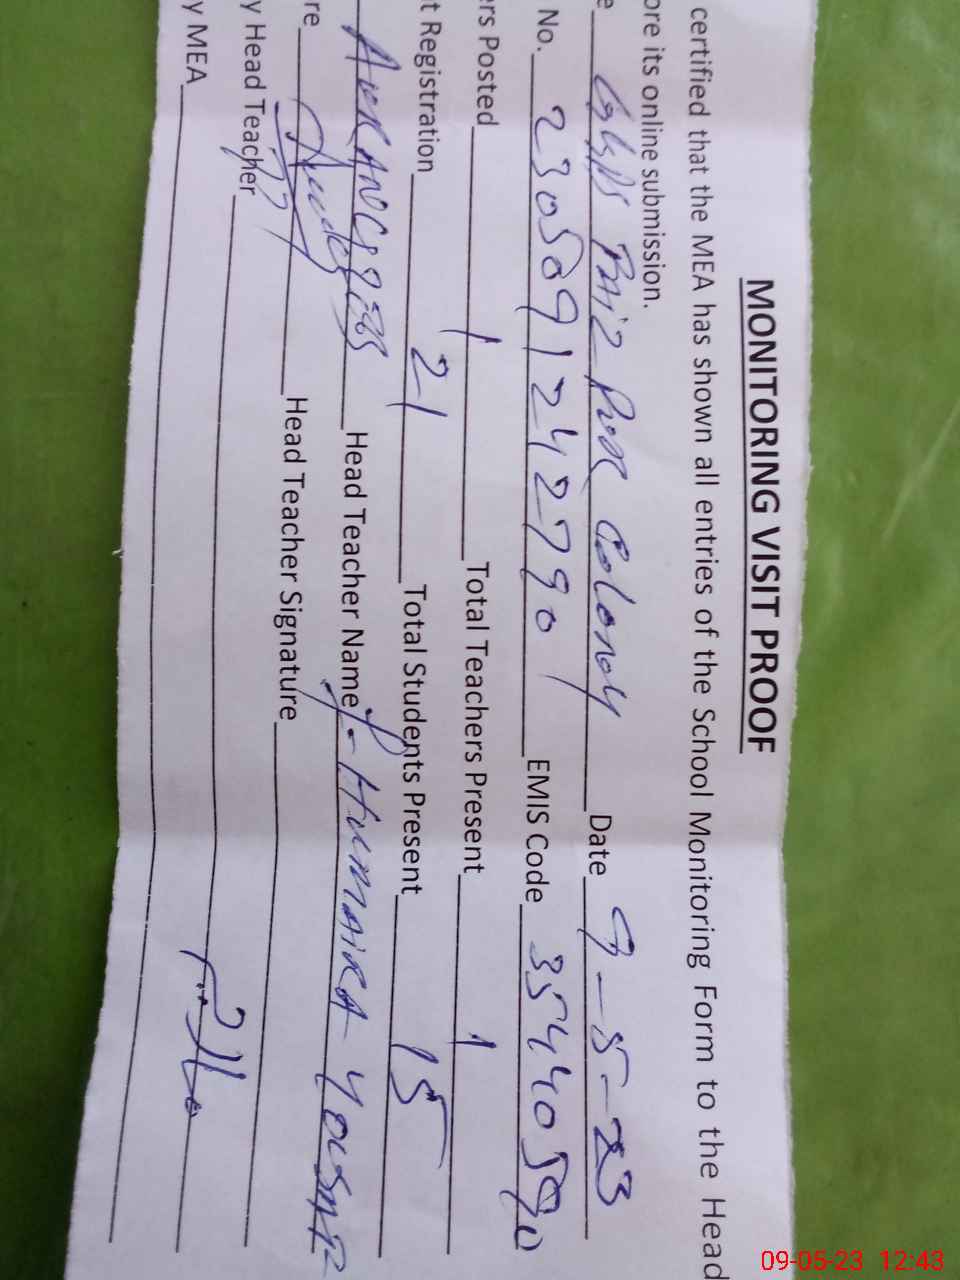 MONITORING VISIT PROOF
certified that the MEA has shown all entries of the School Monitoring Form to the Head
ore its online submission.
e GGPS Faiz Pur Colony Date 9-5-23
No. 230591242790 EMIS Code 35440590
ers Posted 1 Total Teachers Present 1
t Registration 21 Total Students Present 15
Head Teacher Name Humaira Yousaf
re Head Teacher Signature
y Head Teacher
y MEA
09-05-23 12:43